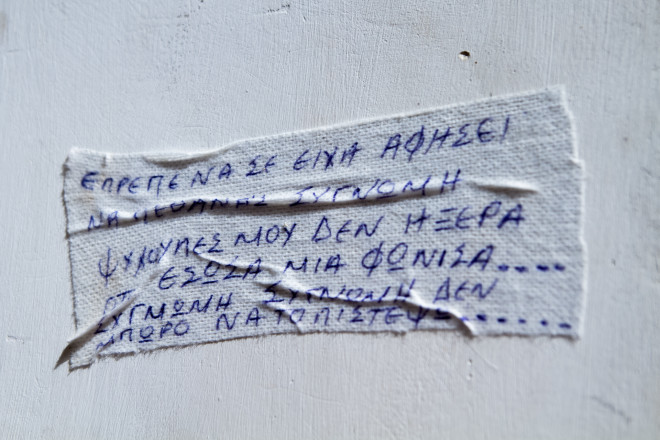 ΕΠΡΕΠΕ ΝΑ ΣΕ ΕΙΧΑ ΑΦΗΣΕΙ
ΝΑ ΠΕΘΑΝΑΣ ΣΥΓΝΩΜΗ
ΨΥΛΟΥΠΕΣ ΜΟΥ ΔΕΝ ΗΞΕΡΑ
ΟΤΙ ΕΣΩΣΑ ΜΙΑ ΦΩΝΙΣΑ.....
ΣΥΓΜΩΜΗ ΣΥΓΝΩΜΗ ΔΕΝ
ΜΠΩΡΟ ΝΑ ΤΟ ΠΙΣΤΕΨΩ.......